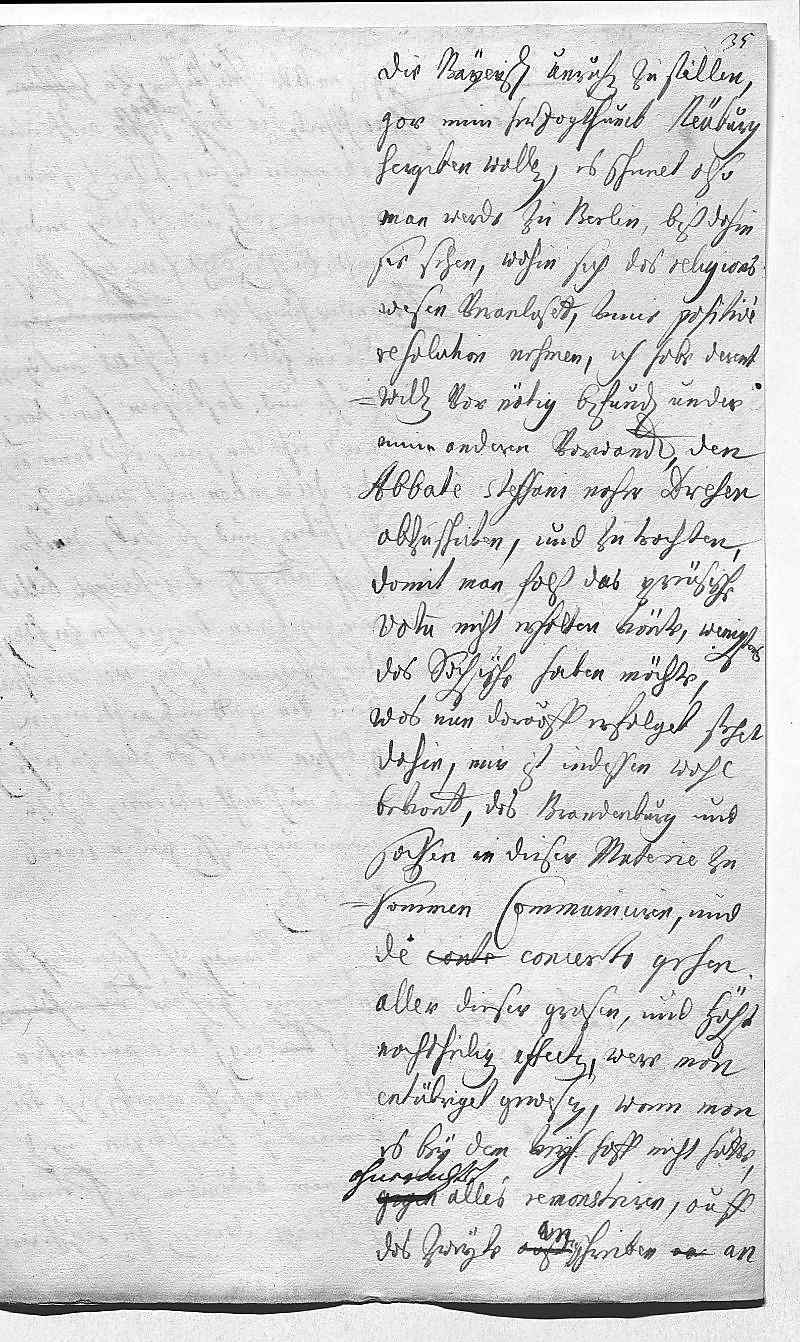 35
die Bäyerisch unruhe zu stillen,
gar mein herzogthumb Neüburg
hergeben wollen, es scheinet also
man werde zu Berlin, biß dahin
sie sehen, wohin sich das religions
wesen veranlaset, keine positive
resolution nehmen, ich habe derent
=willen vor nötig befunden under
einem anderen vorwandt, den
Abbate Steffani naher Dresen
abzuschicken, und zu trachten,
damit man fals das preüsische
votum nicht erhalten könte, wenigstens
das Sächsische haben möchte,
was nun darauff erfolget stehet
dahin, mir ist indessen wohl
bekant, das Brandenburg und
sachsen in dieser Materie zu
=sammen Communiciren, und
de conte concerto gehen.
aller dieser grosen, und höchst
nachtheilig effecten, were man
entübriget gewesen, wann man
es bey dem keys. hoff nicht hätte,
ohnerachtet
gegen alles remonstriren, auff
das zweyte schreiben an
an